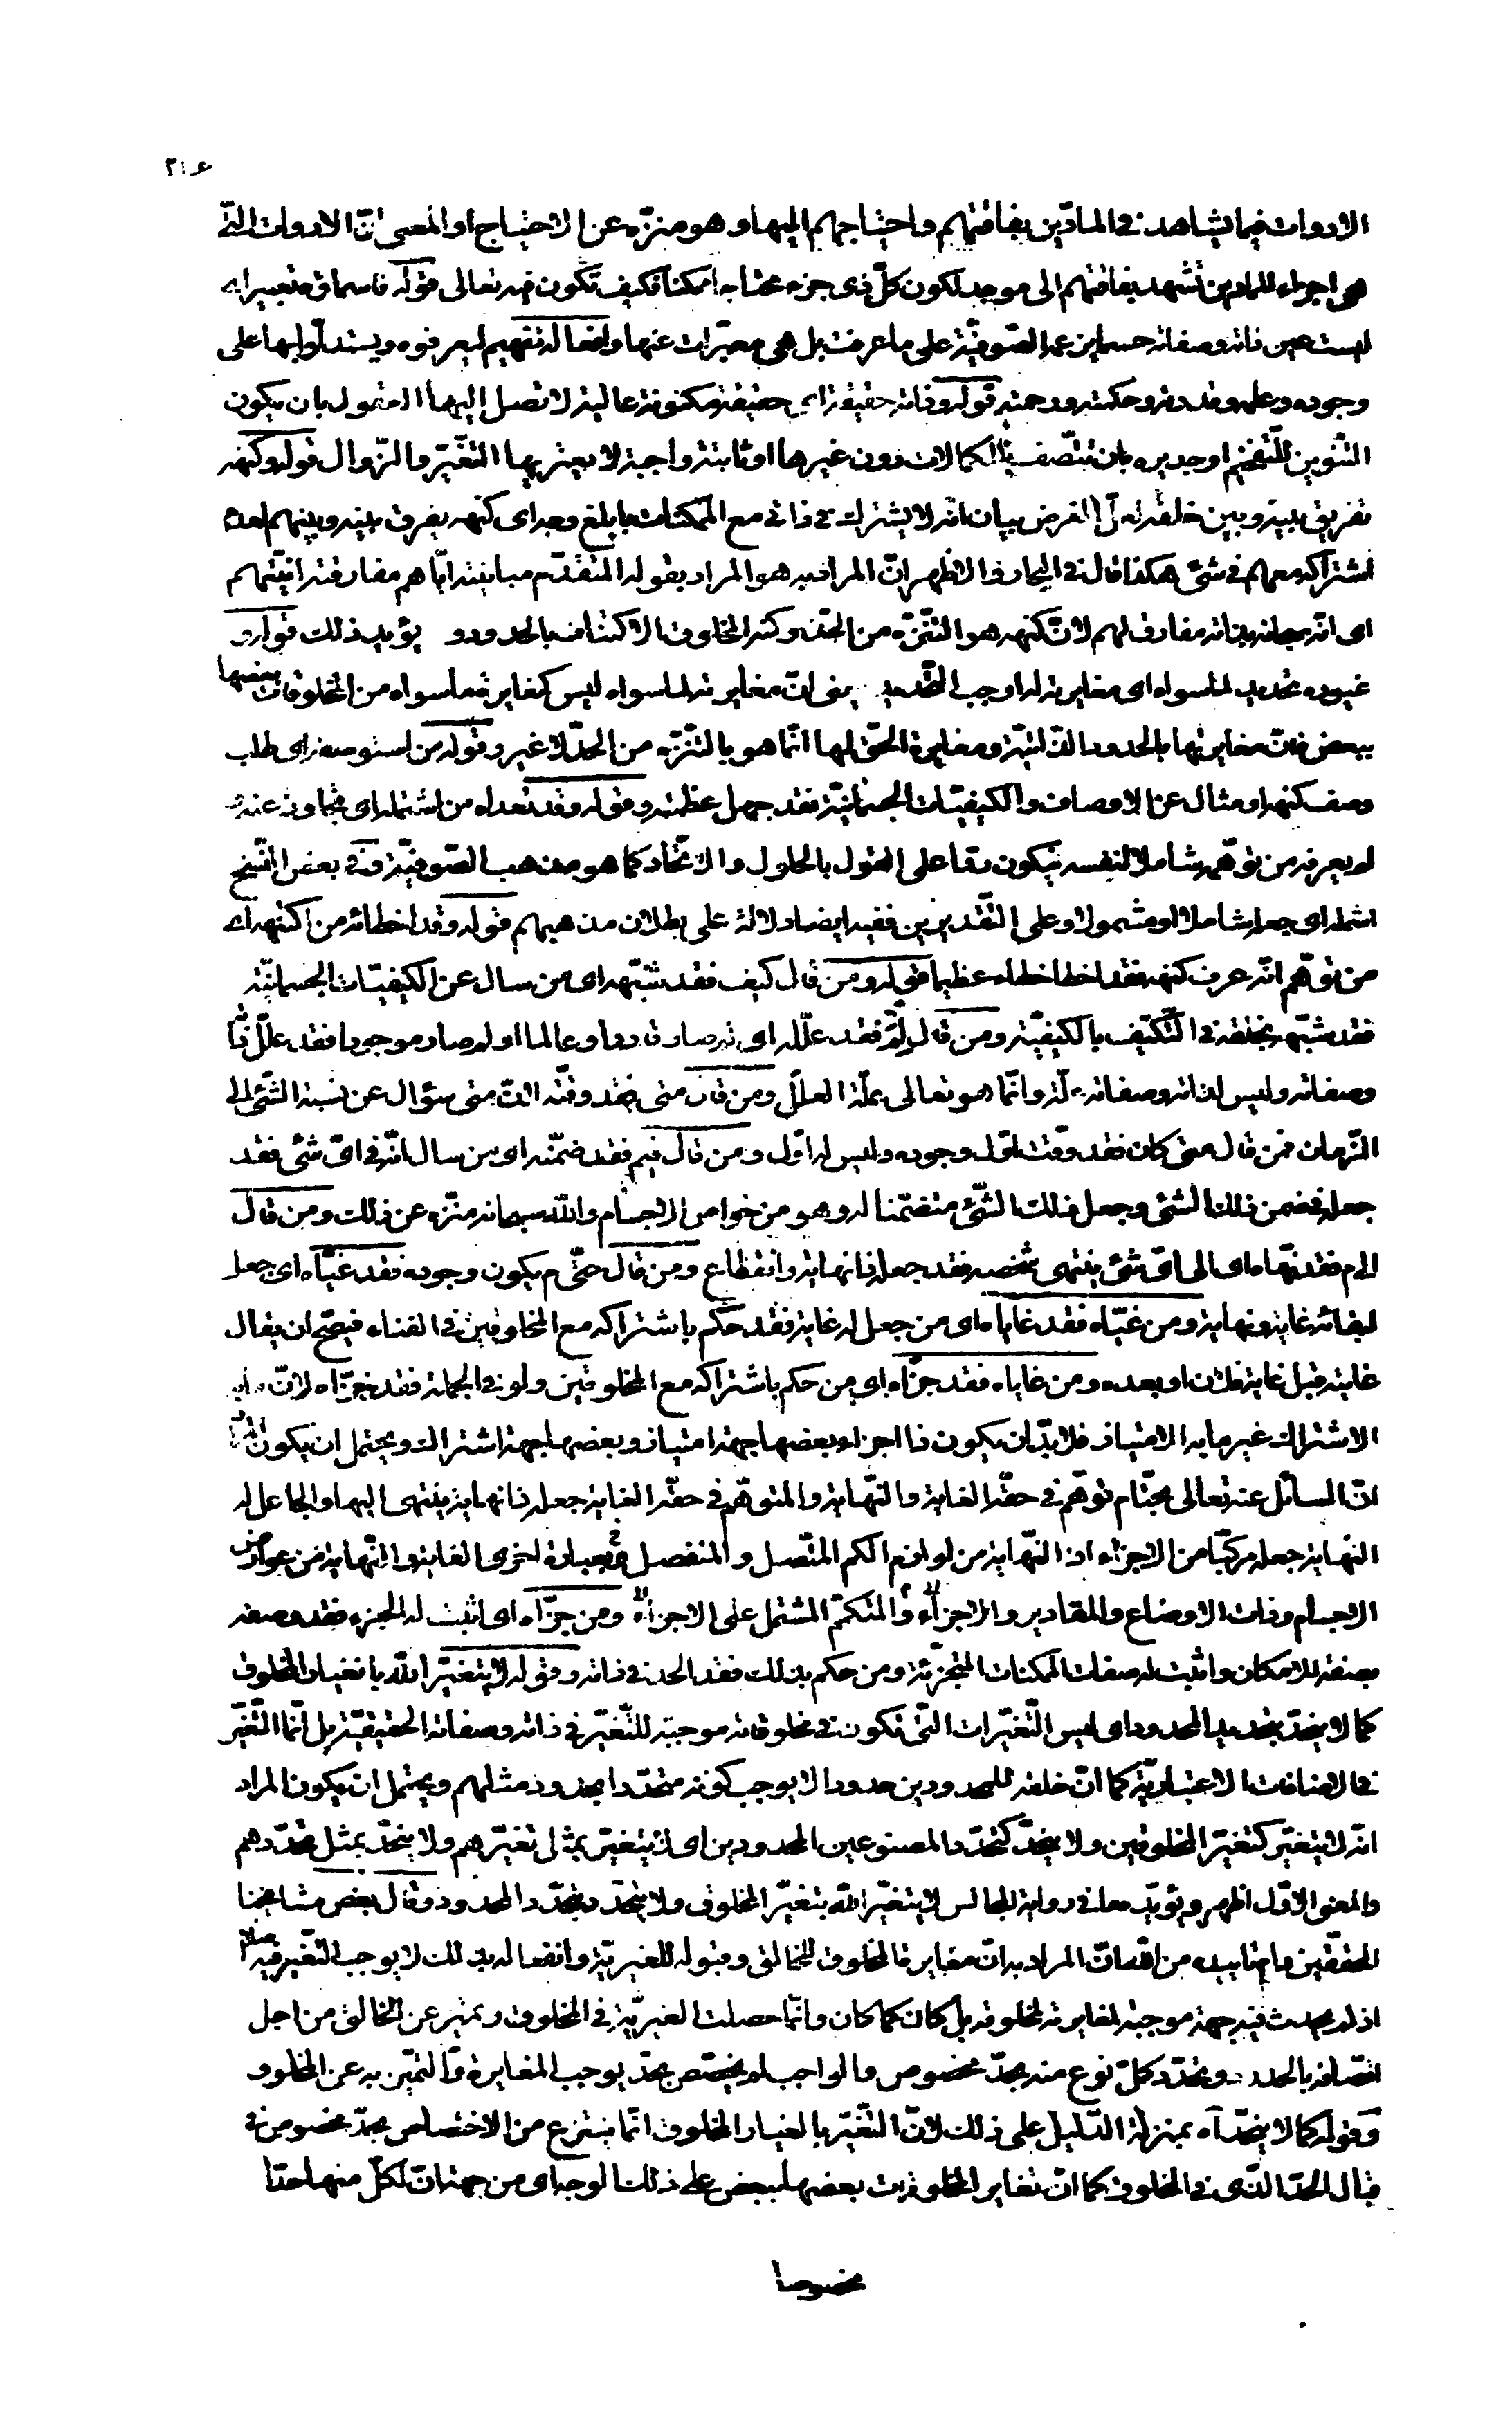 ٢٠٦
الادوات فيما يشاهد في المادّيّن بفاقتهم واحتياجهم اليها وهو منزّه عن الاحتياج او المعنى انّ الادوات التّي
هي اجزاء للمادّيين تشهد بفاقتهم الى موجد لكون كلّ ذي جزء محتاجا ممكنا فكيف تكون فيه تعالى قوله فاسماؤه تعبير اي
ليست عين ذاته وصفاته حسبما يزعمه الصّوفيّة على ما عرفت بل هي معبّرات عنها وافعاله تفهيم ليعرفوه ويستدلّوا بها على
وجوده وعلمه وقدرته وحكمته ورحمته قوله وذاته حقيقة اي حقيقة مكنونة عالية لا تصل اليها العقول بان يكون
التنوين للتّفخيم او جديرة بان تتّصف بالكمالات دون غيرها او ثابتة واجبة لا يعتريها التّغيّر والزّوال قوله وكنهه
تفريق بينه وبين خلقه لعلّ الغرض بيان انّه لا يشترك في ذاتي مع الممكنات بابلغ وجه اي كنهه يفرق بينه وبينهم لعدم
اشتراكه معهم في شئ هكذا قال في البحار والاظهر انّ المراد به هو المراد بقوله المتقدّم مباينته ايّاهم مفارقته انيّتهم
اي انّه بجلاله بذاته مفارق لهم لانّ كنهه هو التنزّه من الحدّ وكنه المخلوق الاكتناف بالحدود و يؤيد ذلك قوله و
غيوره تحديد لما سواه اي مغايرته لما وجب التّحديد يعني انّ مغايرته لما سواه ليس كمغايرة ما سواه من المخلوقات بعضها
ببعض فانّ مغايرتها بالحدود الذّاتيّة ومغايرة الحقّ لها انّما هو بالتنزّه من الحدّ لا غير وقوله من استوصفه اي طلب
وصف كنهه او مثال عن الاوصاف والكيفيّات الجسمانيّة فقد جهل عظمته وقوله وقد تعداه من اشتمله اي تجاوز عنه و
لم يعرفه من توهّمه شاملا لنفسه فيكون ردّا على القول بالحلول والاتّحاد كما هو مذهب الصّوفيّة وفي بعض النّسخ
اشمله اي جعله شاملا او مشمولا وعلى التّقديرين ففيه ايضا دلالة على بطلان مذهبهم قوله وقد اخطائه من اكتنهه اي
من توهّم انّه عرف كنهه فقد اخطا خطاء عظيما قوله ومن قال كيف فقد شبّهه اي من سال عن الكيفيّات الجسمانيّة
فقد شبّهه بخلقه في التّكيّف بالكيفيّة ومن قال لِمَ فقد علّله اي لم صار قادرا وعالما او لم صار موجودا فقد علّل ذاته
وصفاته وليس لذاته وصفاته علّة وانّما هو تعالى علّة العلل ومن قال متى فقد وقّته اذ متى سؤال عن نسبة الشّئ الى
الزّمان فمن قال متى كان فقد وقّت اوّل وجوده وليس له اوّل ومن قال فيم فقد ضمّنه اي من سال انّه في ايّ شئ فقد
جعله في ضمن ذلك الشّئ وجعل ذلك الشّئ متضمّنا له وهو من خواص الاجسام واللّه سبحانه منزّه عن ذلك ومن قال
الى م فقد نهّاه اي الى ايّ شئ ينتهي شخصه فقد جعل له نهاية وانقطاع ومن قال حتّى م يكون وجوده فقد غيّاه اي جعل
لبقائه غاية ونهاية ومن غيّاه فقد غاياه اي من جعل له غاية فقد حكم باشتراكه مع المخلوقين في الفناء فيصحّ ان يقال
غايته قبل غاية فلان او بعده ومن غاياه فقد جزّاه اي من حكم باشتراكه مع المخلوقين ولو في الجملة فقد جزّاه لانّ ما به
الاشتراك غير ما به الامتياز فلا بدّ ان يكون ذا اجزاء بعضها جهة امتياز وبعضها جهة اشتراك ويحتمل ان يكون المراد
انّ السائل عنه تعالى بحتّام توهّم في حقّه الغاية والنّهاية والمتوهّم في حقّه الغاية جعله ذا نهاية ينتهي اليها والجاعل له
النهاية جعله مركّبا من الاجزاء اذ النّهاية من لوازم الكم المتّصل والمنفصل وبعبارة اخرى الغاية والنّهاية من عوارض
الاجسام وذات الاوضاع والمقادير والاجزاء والمتكمّم المشتمل على الاجزاء ومن جزّاه اي اثبت له الجزء فقد وصفه
بصفة للامكان واثبت له صفات الممكنات المتجزّئة ومن حكم بذلك فقد الحد في ذاته وقوله لا يتغيّر اللّه بانغيار المخلوق
كما لا ينحدّ بتحديد المحدود اي ليس التّغيّرات التّي تكون في مخلوقاته موجبة للتّغيّر في ذاته وصفاته الحقيقيّة بل انّما التّغيّر
في الاضافات الاعتباريّة كما انّ خلقه للمحدودين حدودا لا يوجب كونه متحدّدا بحدود مثلهم ويحتمل ان يكون المراد
انّه لا يتغيّر كتغيّر المخلوقين ولا ينحدّ كتحدّد المصنوعين المحدودين اي لا يتغيّر بمثل تغيّرهم ولا ينحدّ بمثل تحدّدهم
والمعنى الاوّل اظهر ويؤيّده ما في رواية المجالس لا يتغيّر اللّه بتغيّر المخلوق ولا يتحدّد بتحدّد المحدود وقال بعض مشايخنا
المحقّقين ما يؤيده من انّ المراد به انّ مغايرة المخلوق للخالق وقبوله للغيريّة وانفعاله بذلك لا يوجب التّغير فيه اصلا
اذ لم يحدث فيه جهة موجبة لمغايرته لمخلوقه بل كان كما كان وانّما حصلت الغيريّة في المخلوق وتميّز عن الخالق من اجل
اتّصافه بالحدود وتحدّد كلّ نوع منه بحدّ مخصوص والواجب لم يختصّ بحدّ يوجب المغايرة والتميّز به عن المخلوق
وقوله كما لا ينحدّ اه بمنزلة الدّليل على ذلك لانّ التّغيّر بالغيار المخلوق انّما ينتزع من الاختصاص بحدّ مخصوص في
قبال الحدّ الذّي في المخلوق كما انّ تغاير المخلوقات بعضها لبعض على ذلك الوجه اي من جهة انّ لكلّ منها حدّا
مخصوصا